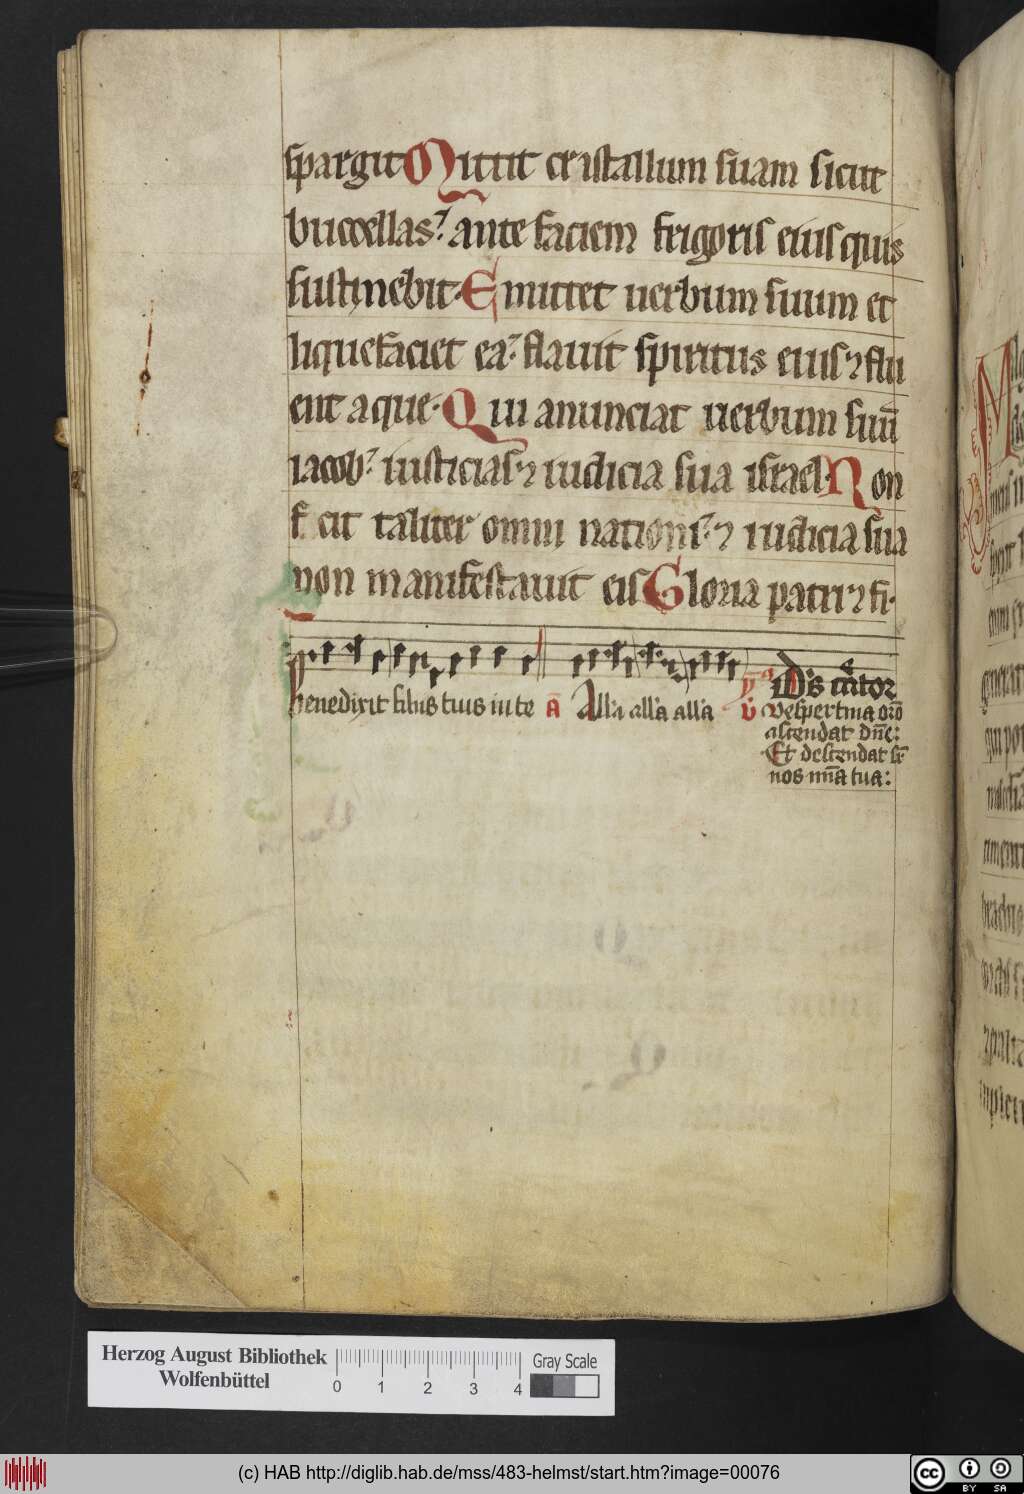 spargit Mittit cristallum suam sicut
buccellas ante faciem frigoris eius quis
sustinebit. Emittet uerbum suum et
liquefaciet ea flauit spiritus eius ⁊ flu
ent aque. Qui anunciat uerbum suū
iacob iusticias ⁊ iudicia sua israel Non
fecit taliter omni nationi ⁊ iudicia sua
non manifestauit eis Gloria patri ⁊ fi.
benedixit filiis tuis in te ā All'a all'a all'a
v̄ Vespertina orō
ascendat dn̄e:
Et descendat
nos mīa tua:
Herzog August Bibliothek
Wolfenbüttel
0 1 2 3 4
Gray Scale
(c) HAB http://diglib.hab.de/mss/483-helmst/start.htm?image=00076
cc BY SA